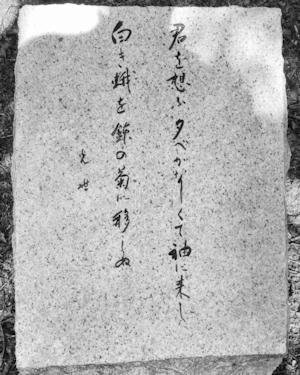 君を想ふ夕べかなしくて袖に来し
白き蛾を鉢の菊に移しぬ
光世